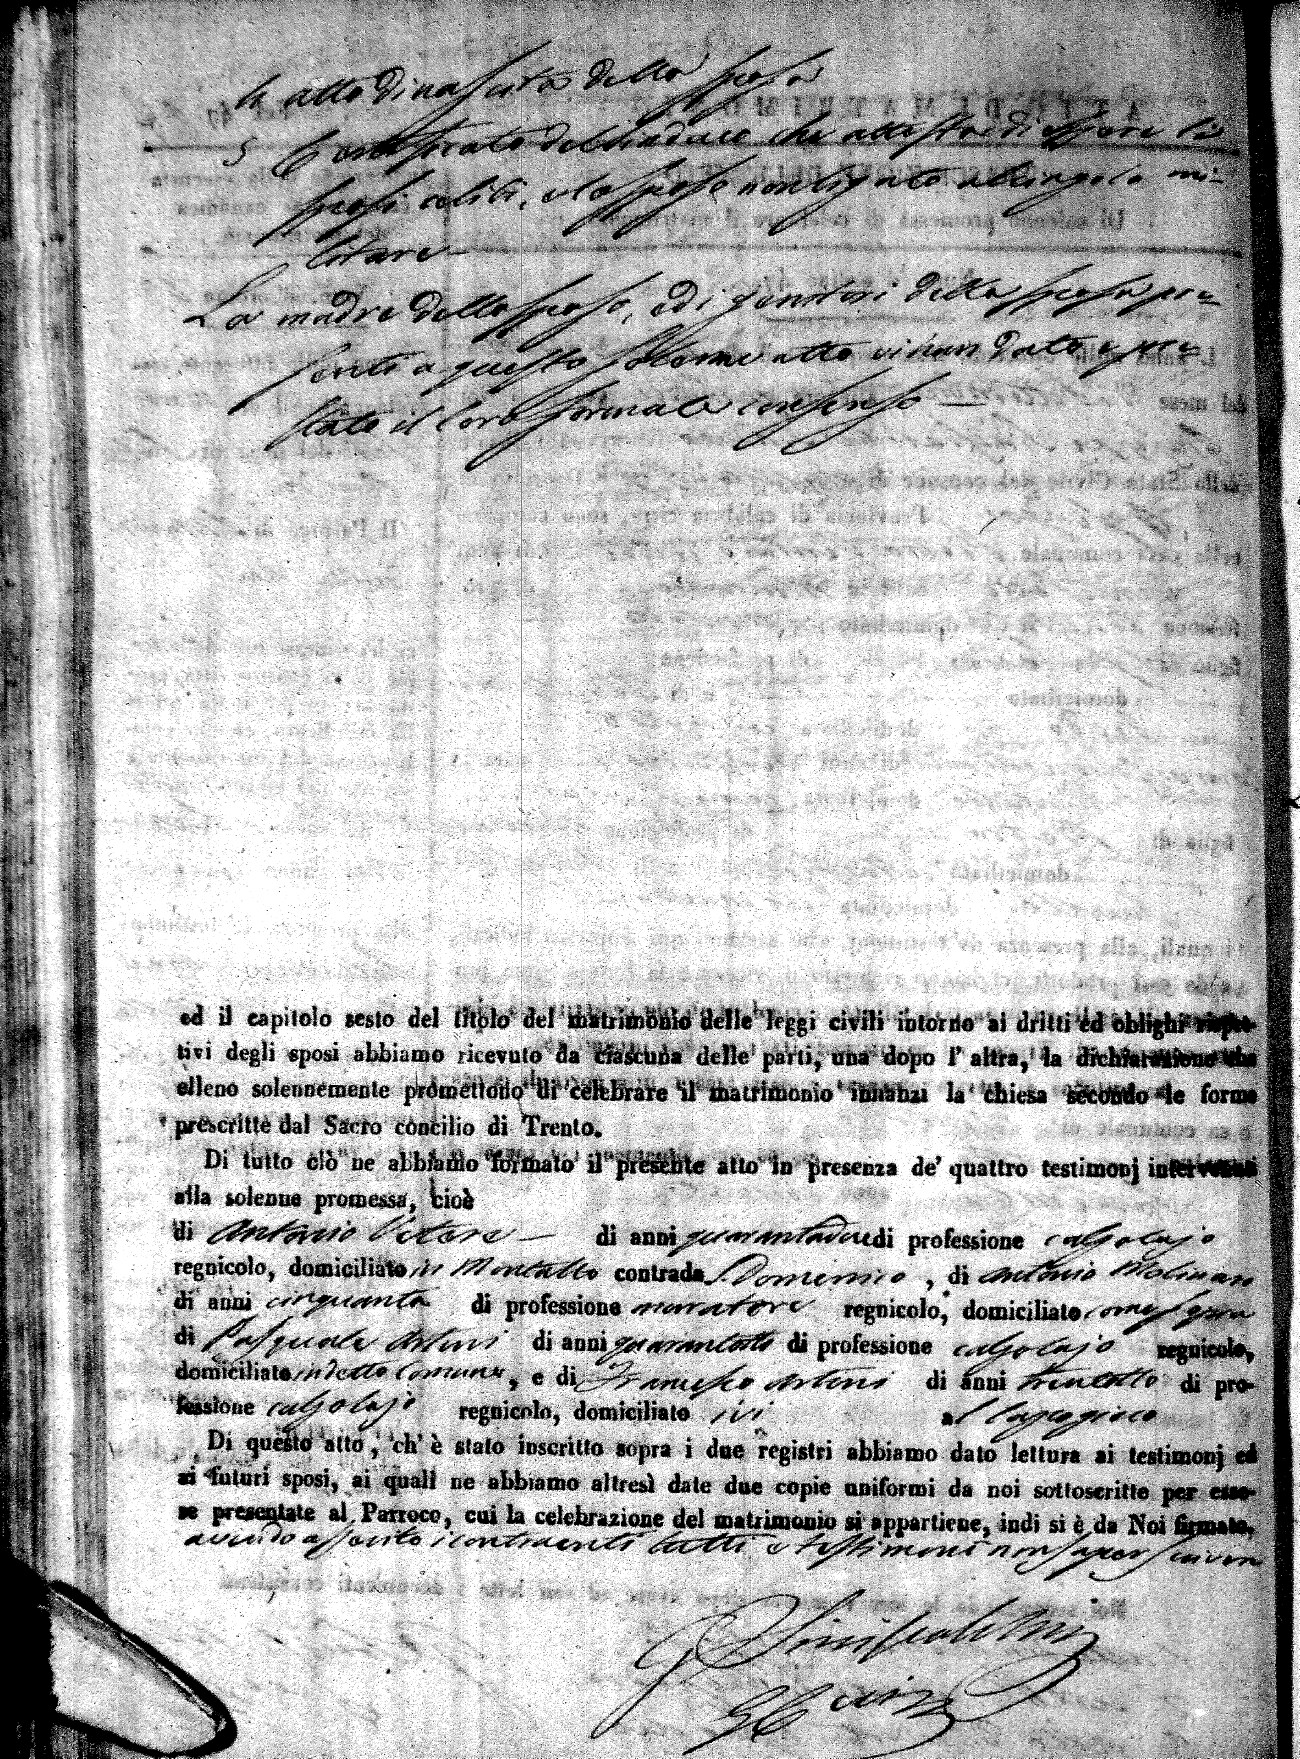 4 atto di nascita della sposa
5 Certificato del Sindaco che attesta di essere li
sposi celibi, e lo sposo non ligato al cingolo mi-
litare —
La madre dello sposo, ed i genitori della sposa pre-
senti a questo solenne atto vi han dato e pre-
stato il loro formale consenso —
ed il capitolo sesto del titolo del matrimonio delle leggi civili intorno ai dritti ed obblighi rispet-
tivi degli sposi abbiamo ricevuto da ciascuna delle parti, una dopo l' altra, la dichiarazione che
elleno solennemente promettono di celebrare il matrimonio innanzi la chiesa secondo le forme
prescritte dal Sacro concilio di Trento.
Di tutto ciò ne abbiamo formato il presente atto in presenza de' quattro testimonj intervenuti
alla solenne promessa, cioè
di Antonio Vetere — di anni quarantadue di professione calzolajo
regnicolo, domiciliato in Montalto contrada S. Domenico , di Antonio Molinaro
di anni cinquanta di professione muratore regnicolo, domiciliato come sopra
di Pasquale Artusi di anni quarantotto di professione calzolajo regnicolo,
domiciliato in detto Comune , e di Francesco Artusi di anni trentotto di pro-
fessione calzolajo regnicolo, domiciliato ivi
Di questo atto, ch' è stato inscritto sopra i due registri abbiamo dato lettura ai testimonj ed
ai futuri sposi, ai quali ne abbiamo altresì date due copie uniformi da noi sottoscritte per esse-
re presentate al Parroco, cui la celebrazione del matrimonio si appartiene, indi si è da Noi firmato,
avendo asserito i contraenti tutti e testimoni non saper scrivere